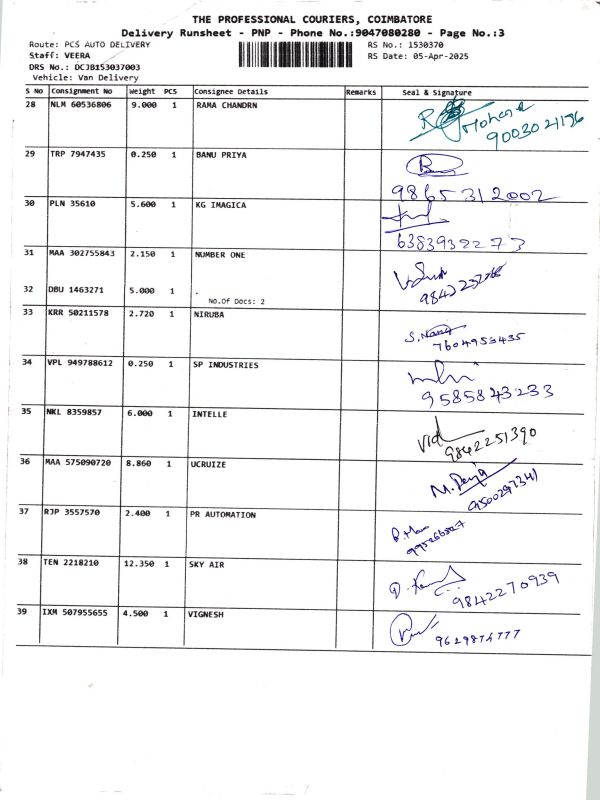 THE PROFESSIONAL COURIERS, COIMBATORE
Delivery Runsheet - PNP - Phone No.:9047080280 - Page No.:3
Route: PCS AUTO DELIVERY RS No.: 1530370
Staff: VEERA RS Date: 05-Apr-2025
DRS No.: DCJB153037003
Vehicle: Van Delivery
S No Consignment No Weight PCS Consignee Details Remarks Seal & Signature
28 NLM 60536806 9.000 1 RAMA CHANDRN
Mohan
9003021196
29 TRP 7947435 0.250 1 BANU PRIYA
9865312002
30 PLN 35610 5.600 1 KG IMAGICA
6383932273
31 MAA 302755843 2.150 1 NUMBER ONE
32 DBU 1463271 5.000 1 .
No.Of Docs: 2
33 KRR 50211578 2.720 1 NIRUBA
7604953435
34 VPL 949788612 0.250 1 SP INDUSTRIES
9585843233
35 NKL 8359857 6.000 1 INTELLE
Vid
9842251390
36 MAA 575090720 8.860 1 UCRUIZE
9500297341
37 RJP 3557570 2.400 1 PR AUTOMATION
38 TEN 2218210 12.350 1 SKY AIR
9842270939
39 IXM 507955655 4.500 1 VIGNESH